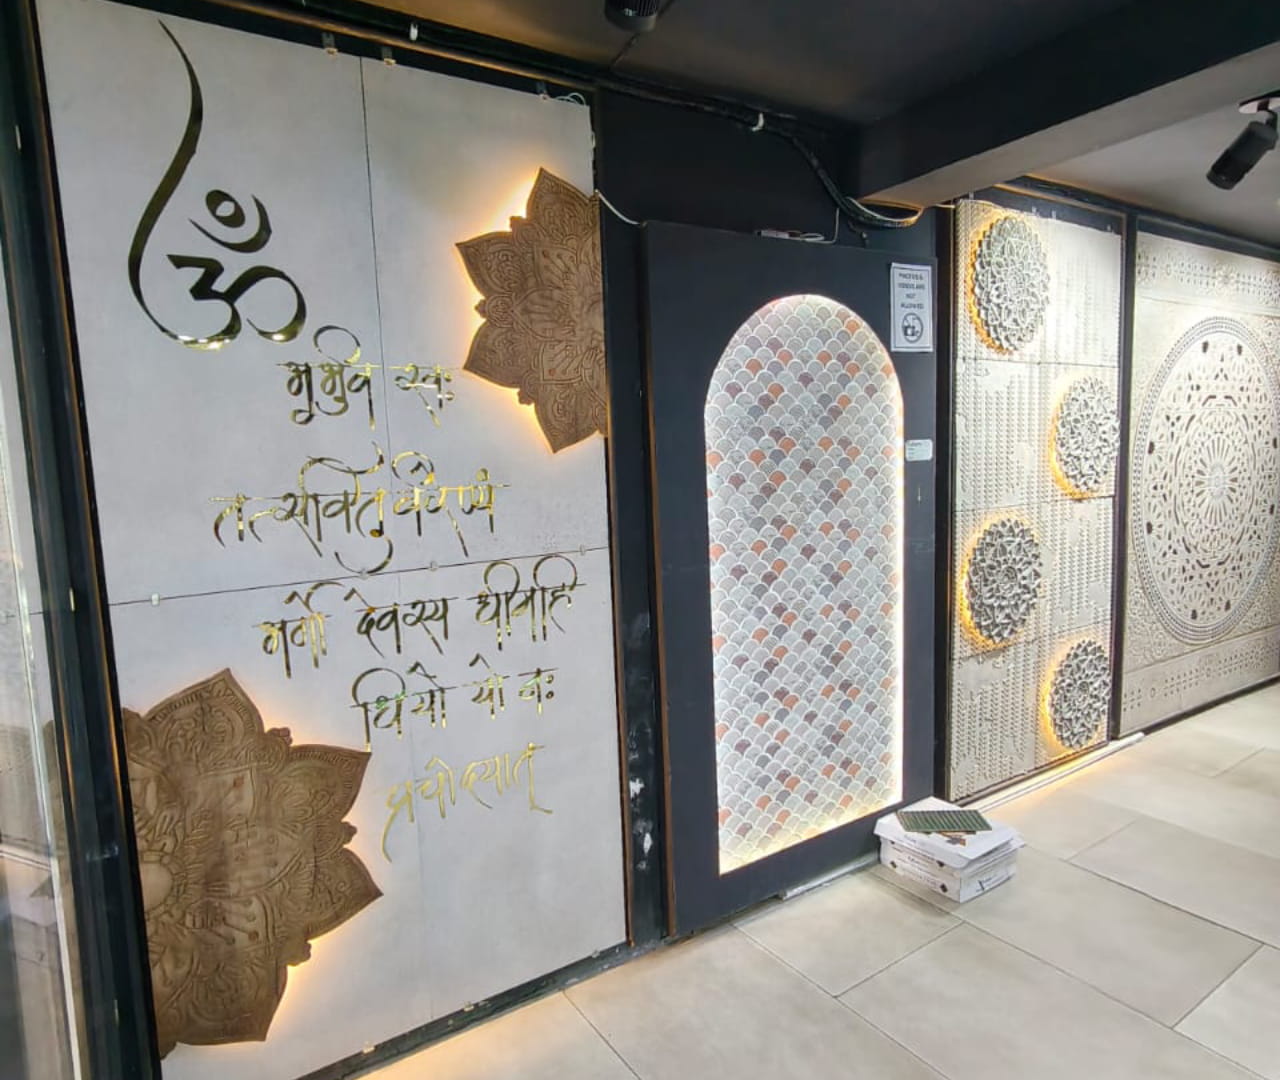 ॐ
भूर्भुव स्वः
तत्सवितुर्वरेण्यं
भर्गो देवस्य धीमहि
धियो यो नः
प्रचोदयात्
PHOTOS &
VIDEOS ARE
NOT
ALLOWED